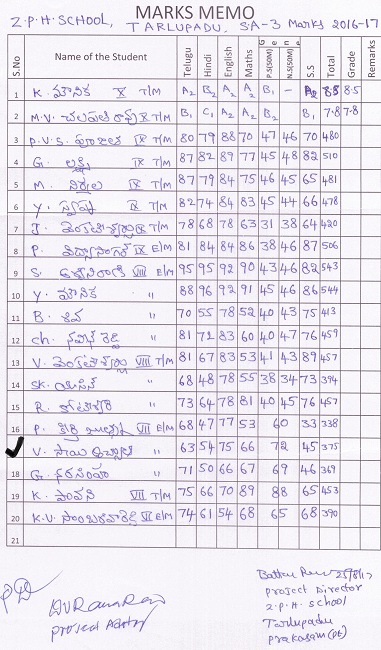 MARKS MEMO
Z.P.H. SCHOOL, TARLUPADU, SA-3 Marks 2016-17
S.No Name of the Student Telugu Hindi English Maths General P.S(50M) N.S(50M) S.S Total Grade Remarks
1 K. మౌనిక X T/M A2 B2 A2 A2 B1 - A2 8.8 8.5
2 M.V. X T/M B1 C1 A2 A2 B2 B1 7.8 7.8
3 P.V.S. IX T/M 80 79 88 70 47 46 70 480
4 G. లక్ష్మి IX T/M 87 82 89 77 45 48 82 510
5 M. నిర్మల IX T/M 87 79 84 75 46 45 65 481
6 Y. స్వప్న IX T/M 82 74 84 83 45 44 66 478
7 IX T/M 78 68 78 63 31 38 64 420
8 P. IX E/M 81 84 84 86 38 46 87 506
9 S. VIII E/M 95 95 92 90 43 46 82 543
10 Y. మౌనిక " 88 96 92 91 45 46 86 544
11 B. శివ " 70 55 78 52 40 43 75 413
12 Ch. నవీన్ రెడ్డి " 81 72 83 60 40 47 76 459
13 V. VIII T/M 81 67 83 53 41 43 89 457
14 SK. యాసిన్ " 68 48 78 55 38 34 73 394
15 R. " 73 64 78 81 40 45 76 457
16 P. VII E/M 68 47 77 53 60 33 338
V. సాయి " 63 54 75 66 72 45 375
18 G. నరసింహ " 71 50 66 67 69 46 369
19 K. పావని VII T/M 75 66 70 89 88 65 453
20 K.V. VI E/M 74 61 54 68 65 68 390
21
25/8/17
Project Director
Z.P.H. School
Tarlupadu
Prakasam (Dt)